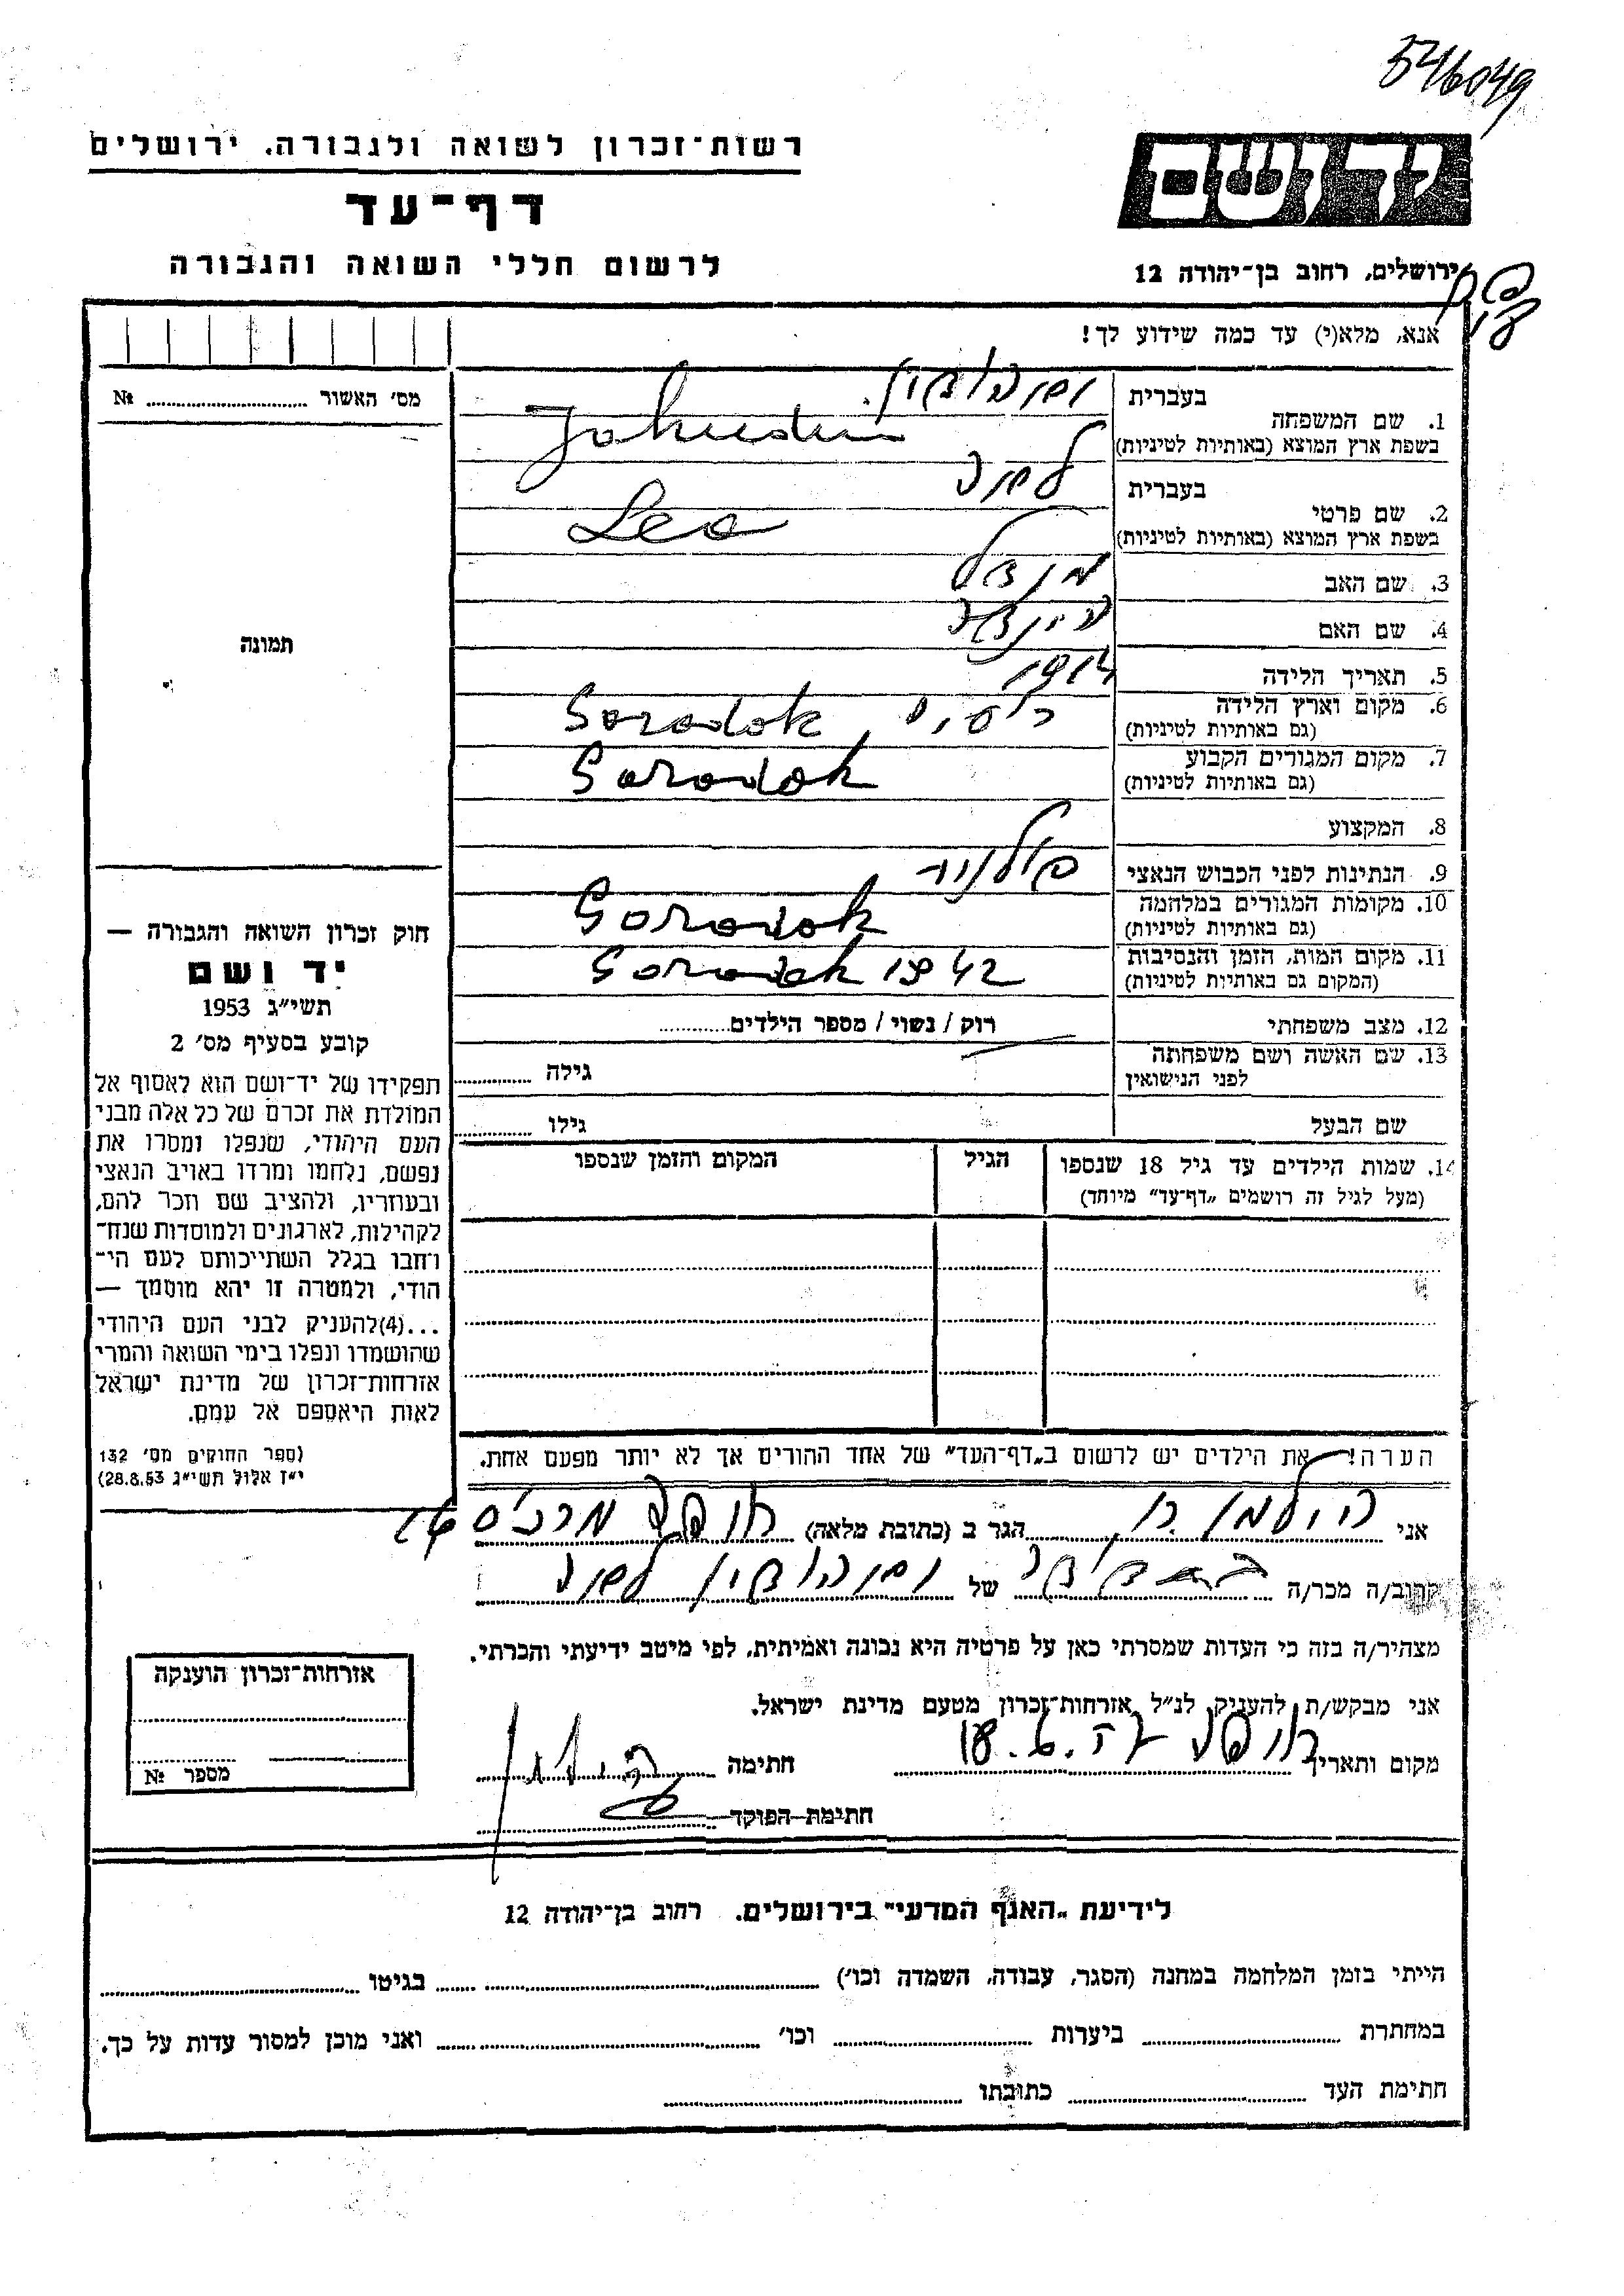 546049
רשות־זכרון לשואה ולגבורה. ירושלים
דף־עד
לרשום חללי השואה והגבורה
יד ושם
ירושלים, רחוב בן־יהודה 12
אנא, מלא(י) עד כמה שידוע לך!
מס׳ האשור № ..........
1. שם המשפחה
בעברית
בשפת ארץ המוצא (באותיות לטיניות)
2. שם פרטי
בעברית
בשפת ארץ המוצא (באותיות לטיניות) Leo
3. שם האב מנדל
4. שם האם
5. תאריך הלידה
6. מקום וארץ הלידה
(גם באותיות לטיניות) Gorodok
7. מקום המגורים הקבוע
(גם באותיות לטיניות) Gorodok
8. המקצוע
9. הנתינות לפני הכבוש הנאצי פולנית
10. מקומות המגורים במלחמה
(גם באותיות לטיניות) Gorodok
11. מקום המות, הזמן והנסיבות
(המקום גם באותיות לטיניות) Gorodok 1942
12. מצב משפחתי רוק / נשוי / מספר הילדים..........
13. שם האשה ושם משפחתה
לפני הנישואין
גילה ..........
שם הבעל גילו ..........
14. שמות הילדים עד גיל 18 שנספו
(מעל לגיל זה רושמים „דף־עד” מיוחד)
הגיל
המקום והזמן שנספו
תמונה
חוק זכרון השואה והגבורה —
יד ושם
תשי״ג 1953
קובע בסעיף מס׳ 2
תפקידו של יד־ושם הוא לאסוף אל
המולדת את זכרם של כל אלה מבני
העם היהודי, שנפלו ומסרו את
נפשם, נלחמו ומרדו באויב הנאצי
ובעוזריו, ולהציב שם וזכר להם,
לקהילות, לארגונים ולמוסדות שנח־
רבו בגלל השתייכותם לעם הי־
הודי, ולמטרה זו יהא מוסמך —
...(4)להעניק לבני העם היהודי
שהושמדו ונפלו בימי השואה והמרי
אזרחות־זכרון של מדינת ישראל
לאות היאספם אל עמם.
(ספר החוקים מס׳ 132
י״ז אלול תשי״ג 28.8.53)
הערה! את הילדים יש לרשום ב„דף־העד” של אחד ההורים אך לא יותר מפעם אחת.
אני הילמן הגר ב (כתובת מלאה) חיפה
קרוב/ה מכר/ה של
מצהיר/ה בזה כי העדות שמסרתי כאן על פרטיה היא נכונה ואמיתית, לפי מיטב ידיעתי והכרתי.
אני מבקש/ת להעניק לנ״ל אזרחות־זכרון מטעם מדינת ישראל.
מקום ותאריך חיפה
חתימה
חתימת הפוקד
אזרחות־זכרון הוענקה
מספר №
לידיעת „האגף המדעי” בירושלים. רחוב בן־יהודה 12
הייתי בזמן המלחמה במחנה (הסגר, עבודה, השמדה וכו׳) .......... בגיטו ..........
במחתרת .......... ביערות .......... וכו׳ .......... ואני מוכן למסור עדות על כך.
חתימת העד .......... כתובתו ..........